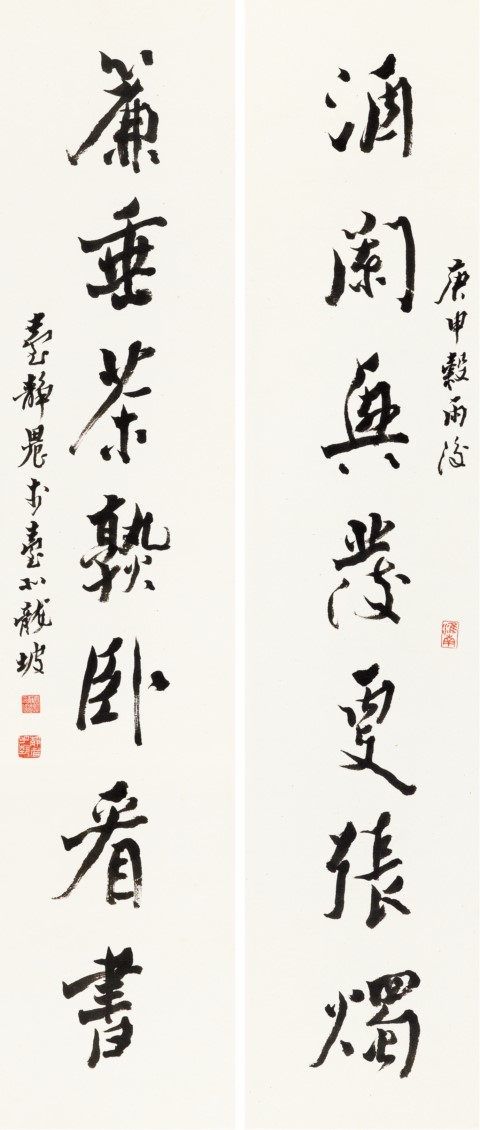 庚申穀雨後
淮南
酒闌興發更張燭
簾垂茶熟臥看書
臺靜農於臺北龍坡